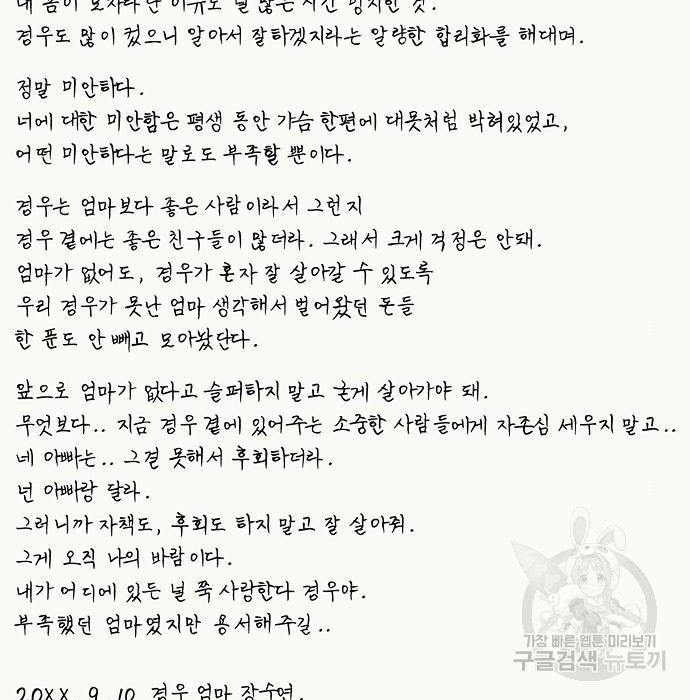 내 몸이 모자라단 이유로 널 많은 시간 방치한 것.
경우도 많이 컸으니 알아서 잘하겠지라는 알량한 합리화를 해대며.
정말 미안하다.
너에 대한 미안함은 평생 동안 가슴 한편에 대못처럼 박혀있었고,
어떤 미안하다는 말로도 부족할 뿐이다.
경우는 엄마보다 좋은 사람이라서 그런지
경우 곁에는 좋은 친구들이 많더라. 그래서 크게 걱정은 안돼.
엄마가 없어도, 경우가 혼자 잘 살아갈 수 있도록
우리 경우가 못난 엄마 생각해서 벌어왔던 돈들
한 푼도 안 빼고 모아놨단다.
앞으로 엄마가 없다고 슬퍼하지 말고 굳게 살아가야 돼.
무엇보다.. 지금 경우 곁에 있어주는 소중한 사람들에게 자존심 세우지 말고..
네 아빠는.. 그걸 못해서 후회하더라.
넌 아빠랑 달라.
그러니까 자책도, 후회도 하지 말고 잘 살아줘.
그게 오직 나의 바람이다.
내가 어디에 있든 널 쭉 사랑한다 경우야.
부족했던 엄마였지만 용서해주길..
20XX. 9. 10. 경우 엄마 장수연.
가장 빠른 웹툰 미리보기
구글검색 뉴토끼